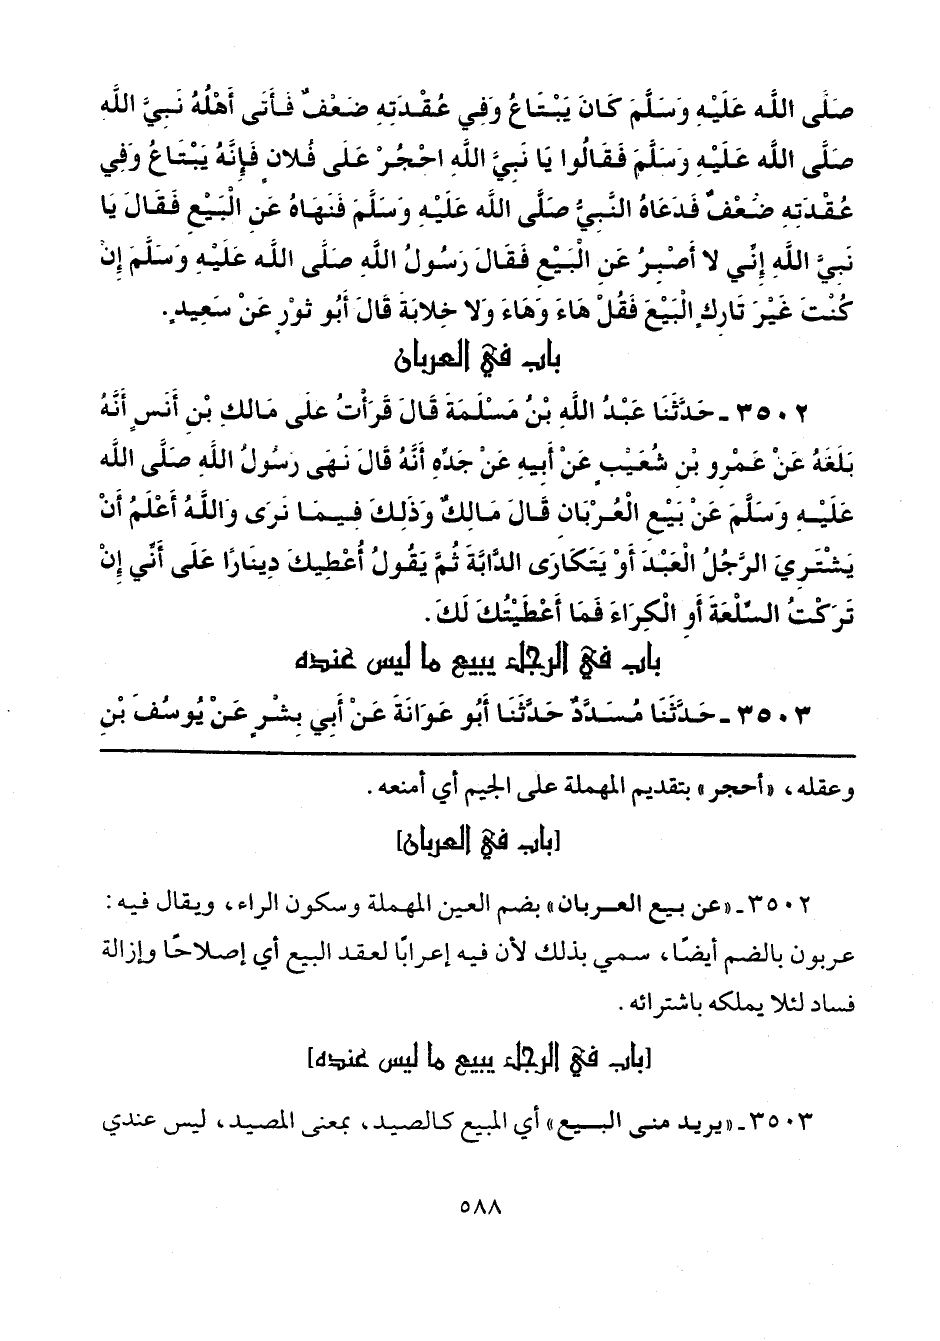 صَلَّى اللَّه عَلَيْهِ وَسَلَّمَ كَانَ يَبْتَاعُ وَفِي عُقْدَتِهِ ضَعْفٌ فَأَتَى أَهْلُهُ نَبِيَّ اللَّه
صَلَّى اللَّه عَلَيْهِ وَسَلَّمَ فَقَالُوا يَا نَبِيَّ اللَّهِ احْجُرْ عَلَى فُلانٍ فَإِنَّهُ يَبْتَاعُ وَفِي
عُقْدَتِهِ ضَعْفٌ فَدَعَاهُ النَّبِيُّ صَلَّى اللَّه عَلَيْهِ وَسَلَّمَ فَنَهَاهُ عَنِ الْبَيْعِ فَقَالَ يَا
نَبِيَّ اللَّهِ إِنِّي لا أَصْبِرُ عَنِ الْبَيْعِ فَقَالَ رَسُولُ اللَّهِ صَلَّى اللَّه عَلَيْهِ وَسَلَّمَ إِنْ
كُنْتَ غَيْرَ تَارِكٍ الْبَيْعَ فَقُلْ هَاءَ وَهَاءَ وَلا خِلابَةَ قَالَ أَبُو ثَوْرٍ عَنْ سَعِيدٍ.
باب في العربان
٣٥٠٢ـ حَدَّثَنَا عَبْدُ اللَّهِ بْنُ مَسْلَمَةَ قَالَ قَرَأْتُ عَلَى مَالِكِ بْنِ أَنَسٍ أَنَّهُ
بَلَغَهُ عَنْ عَمْرِو بْنِ شُعَيْبٍ عَنْ أَبِيهِ عَنْ جَدِّهِ أَنَّهُ قَالَ نَهَى رَسُولُ اللَّهِ صَلَّى اللَّه
عَلَيْهِ وَسَلَّمَ عَنْ بَيْعِ الْعُرْبَانِ قَالَ مَالِكٌ وَذَلِكَ فِيمَا نَرَى وَاللَّهُ أَعْلَمُ أَنْ
يَشْتَرِيَ الرَّجُلُ الْعَبْدَ أَوْ يَتَكَارَى الدَّابَّةَ ثُمَّ يَقُولُ أُعْطِيكَ دِينَارًا عَلَى أَنِّي إِنْ
تَرَكْتُ السِّلْعَةَ أَوِ الْكِرَاءَ فَمَا أَعْطَيْتُكَ لَكَ.
باب في الرجل يبيع ما ليس عنده
٣٥٠٣ـ حَدَّثَنَا مُسَدَّدٌ حَدَّثَنَا أَبُو عَوَانَةَ عَنْ أَبِي بِشْرٍ عَنْ يُوسُفَ بْنِ
وعقله، «أحجر» بتقديم المهملة على الجيم أي أمنعه.
[باب في العربان]
٣٥٠٢ـ «عن بيع العربان» بضم العين المهملة وسكون الراء، ويقال فيه:
عربون بالضم أيضًا، سمي بذلك لأن فيه إعرابًا لعقد البيع أي إصلاحًا وإزالة
فساد لئلا يملكه باشترائه.
[باب في الرجل يبيع ما ليس عنده]
٣٥٠٣ـ «يريد منى البيع» أي المبيع كالصيد، بمعنى المصيد، ليس عندي
٥٨٨